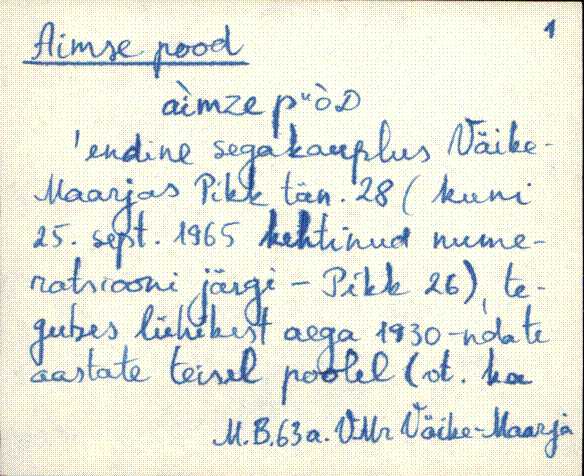 1
Aimse pood
àimze pᵘòD
'endine segakauplus Väike-
Maarjas Pikk tän. 28 (kuni
25. sept. 1965 kehtinud nume-
ratsiooni järgi – Pikk 26), te-
gutses lühikest aega 1930-ndate
aastate teisel poolel (vt. ka
M.B.63a. VMr Väike-Maarja